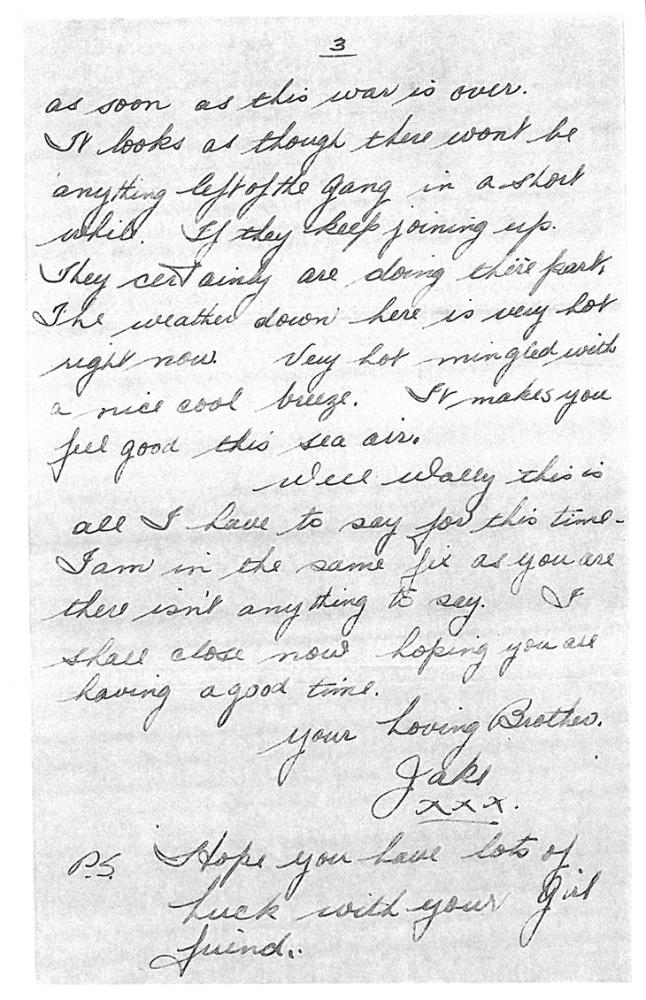 3
as soon as this war is over.
It looks as though there wont be
anything left of the Gang in a short
while. If they keep joining up.
They certainly are doing there part.
The weather down here is very hot
right now. Very hot mingled with
a nice cool breeze. It makes you
feel good this sea air.
Well Wally this is
all I have to say for this time.
I am in the same fix as you are
there isn't anything to say. I
shall close now hoping you are
having a good time.
Your Loving Brother.
Jake
xxx.
P.S. Hope you have lots of
Luck with your Girl
friend.